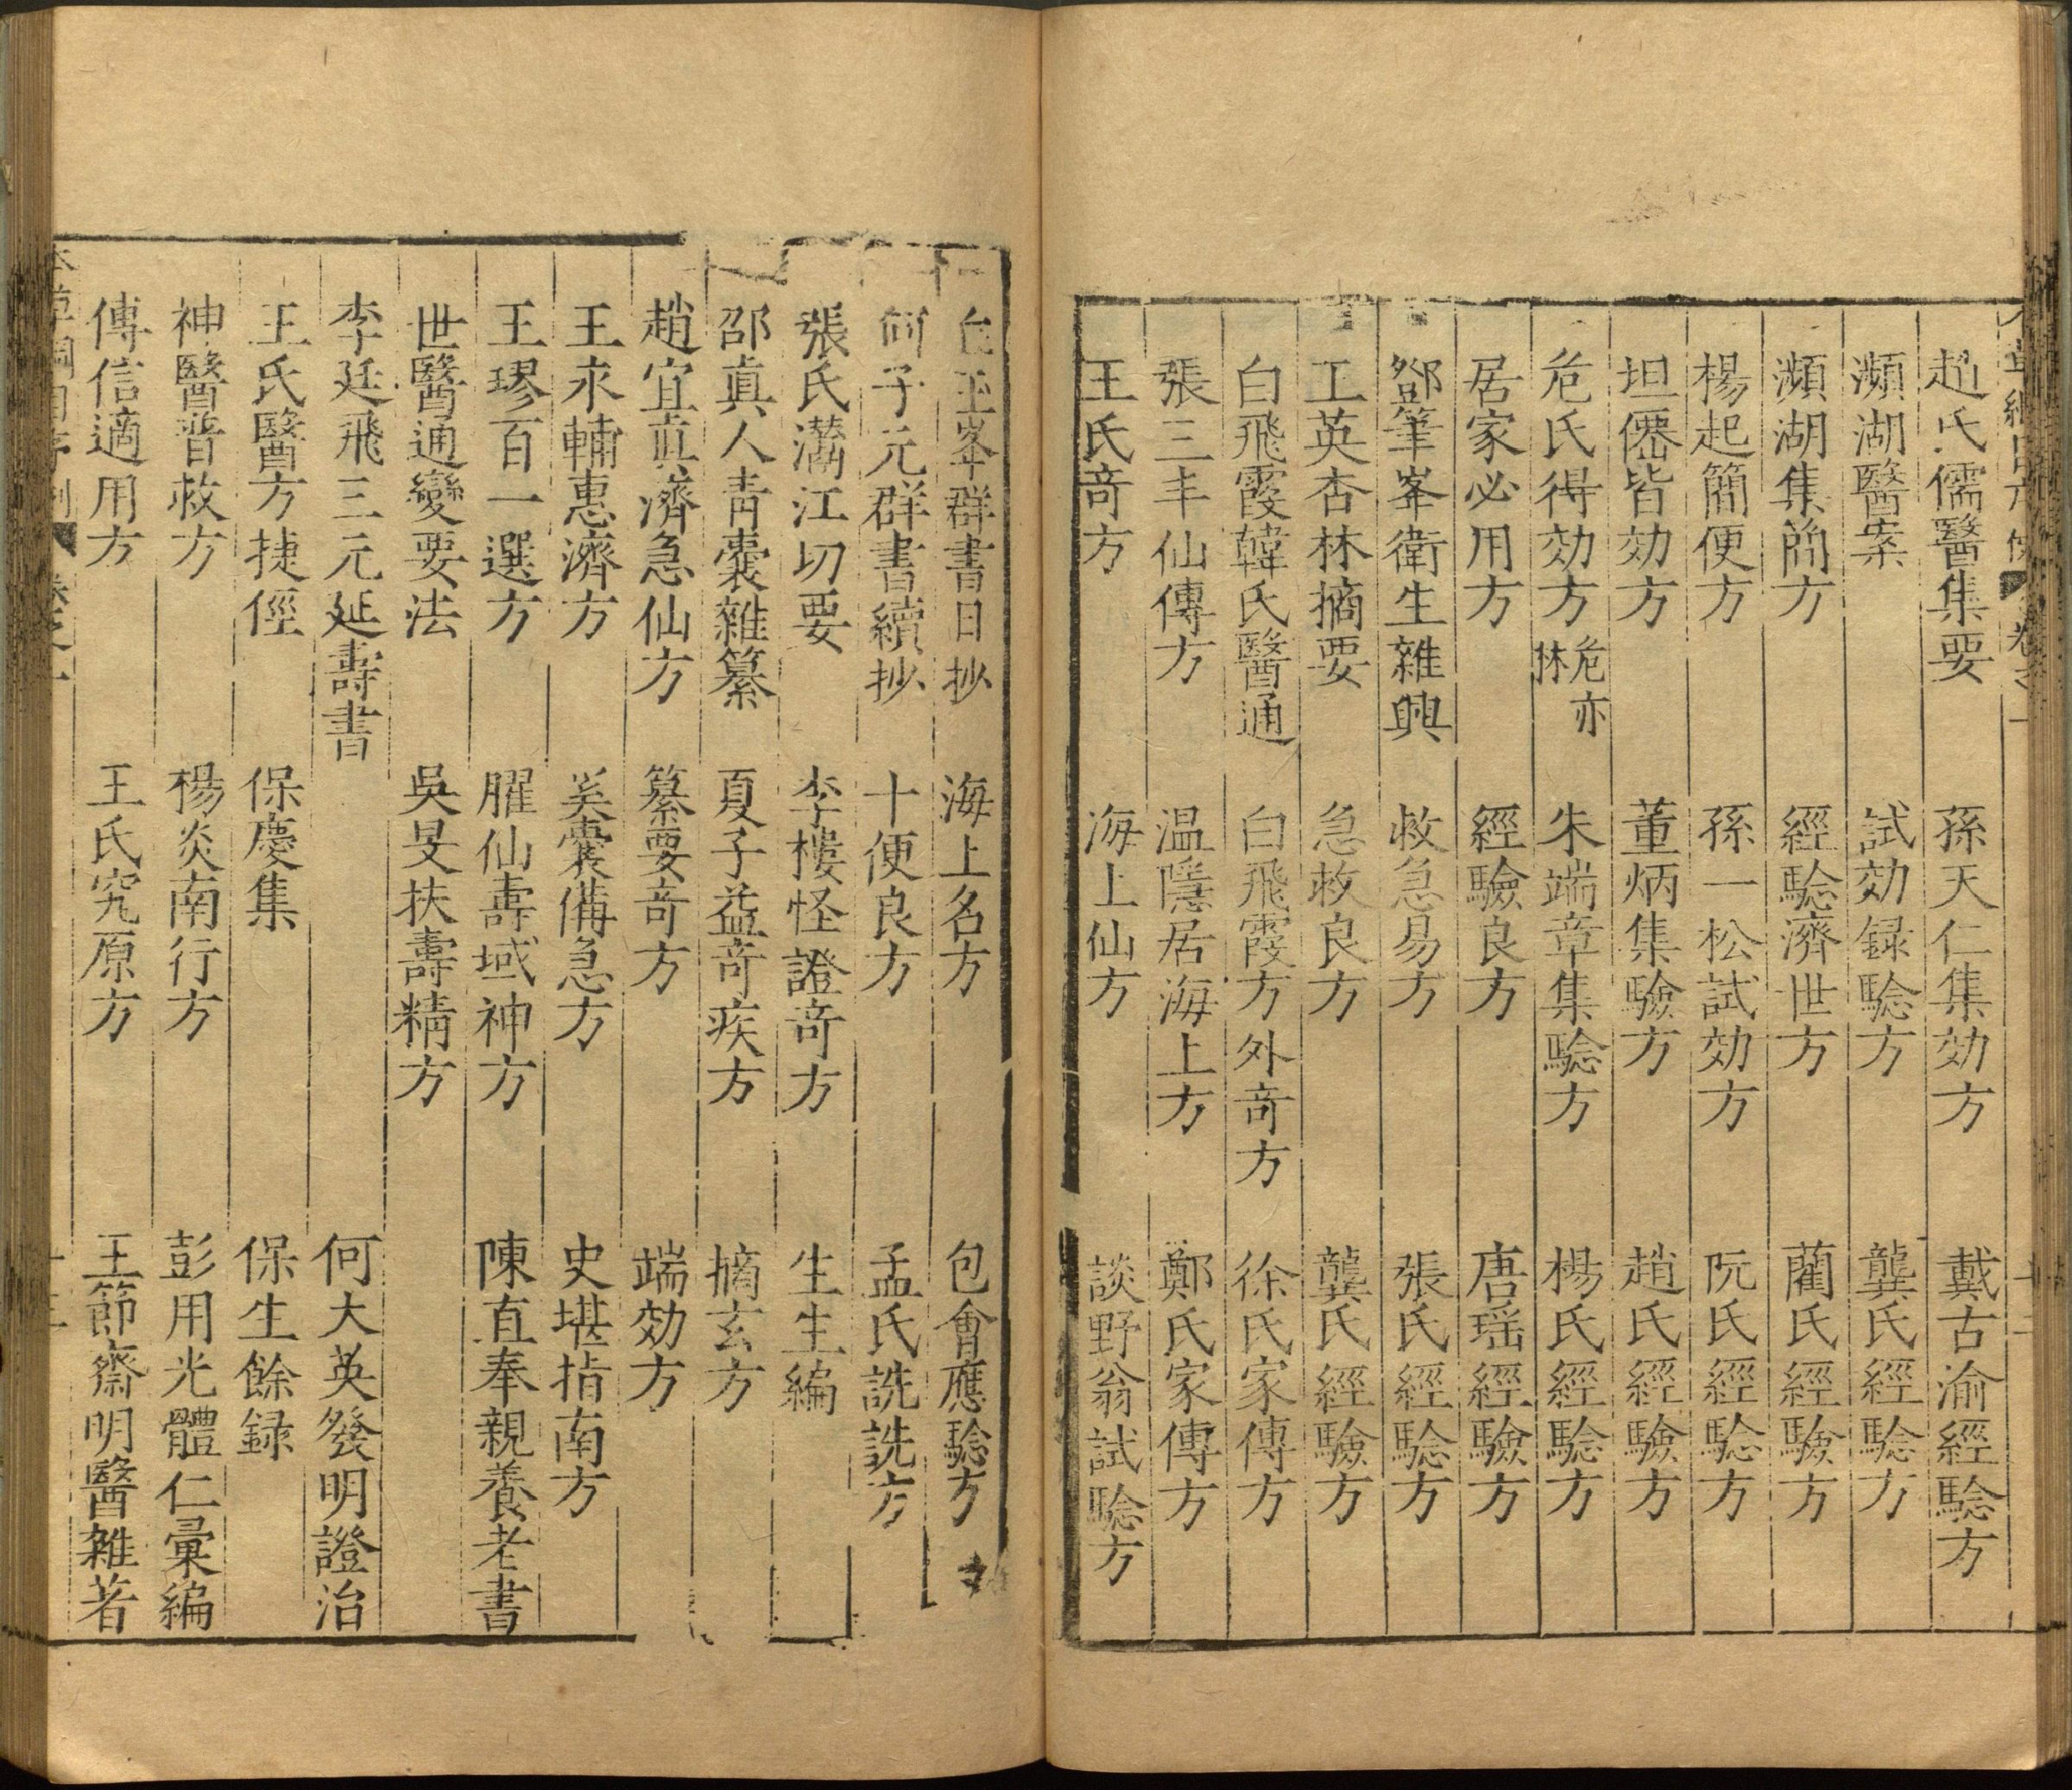 趙氏儒醫集要 孫天仁集効方 戴古渝經驗方
瀕湖醫案 試効録騐方 龔氏經騐方
瀕湖集簡方 經騐濟世方 藺氏經驗方
楊起簡便方 孫一松試効方 阮氏經騐方
坦僊皆効方 董炳集驗方 趙氏經驗方
危氏得効方 危亦林 朱端章集騐方 楊氏經騐方
居家必用方 經驗良方 唐瑶經驗方
鄧筆峯衛生雜興 救急易方 張氏經騐方
王英杏林摘要 急救良方 龔氏經驗方
白飛霞韓氏醫通 白飛霞方外奇方 徐氏家傳方
張三丰仙傳方 温隱居海上方 鄭氏家傳方
王氏奇方 海上仙方 談野翁試騐方
包會應騐方 海上名方 玉峯群書日抄
何子元群書續抄 十便良方 孟氏詵詵方
張氏灊江切要 李樓怪證奇方 生生編
邵真人青囊雜纂 夏子益奇疾方 摘玄方
趙宜真濟急仙方 纂要奇方 端効方
王永輔惠濟方 奚囊備急方 史堪指南方
王璆百一選方 臞仙壽域神方 陳直奉親養老書
世醫通變要法 吳旻扶壽精方
李廷飛三元延壽書 何大英發明證治
王氏醫方捷徑 保慶集 保生餘録
神醫普救方 楊炎南行方 彭用光體仁彙編
傳信適用方 王氏究原方 王節齋明醫雜著